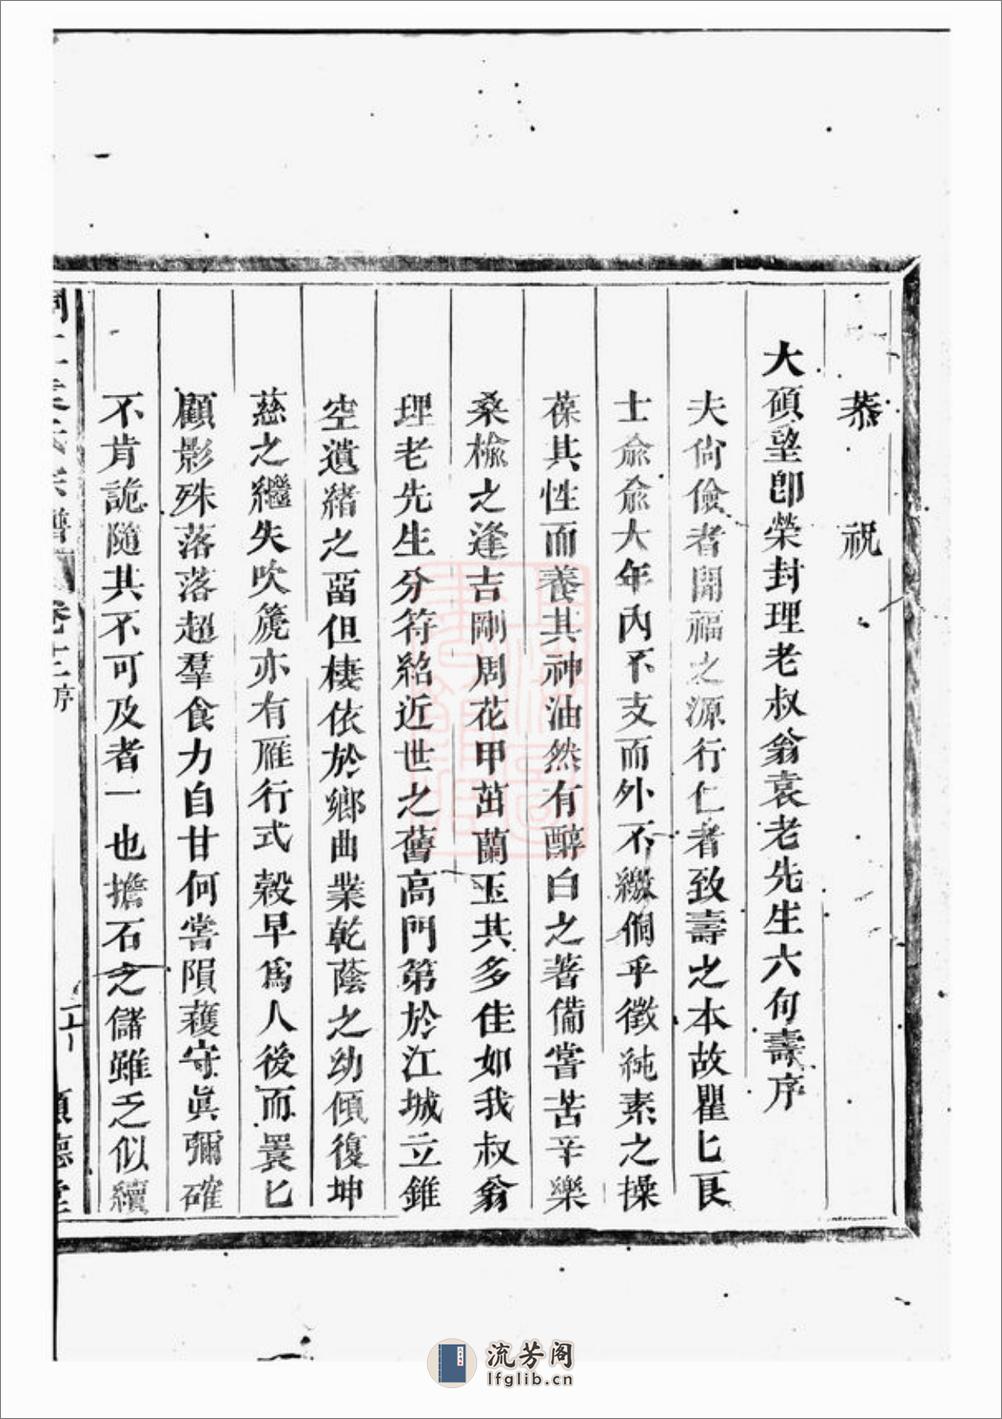 恭祝
大碩望卽榮封理老叔翁袁老先生六旬壽序
夫尙儉者開福之源行仁者致壽之本故瞿匕良
士俞俞大年內不支而外不繳侗乎徵純素之操
葆其性而養其神油然有醇白之著備嘗苦辛樂
桑榆之逢吉剛周花甲茁蘭玉其多佳如我叔翁
理老先生分符紹近世之舊高門第於江城立錐
空遺緒之畱但棲依於鄉曲業乾蔭之幼傾復坤
慈之繼失吹篪亦有雁行式榖早爲人後而睘匕
顧影殊落落超羣食力自甘何嘗隕蘀守眞彌確
不肯詭隨其不可及者一也擔石之儲雖乏似續
氏宗譜 卷十二序
德堂
流芳阁
lfglib.cn